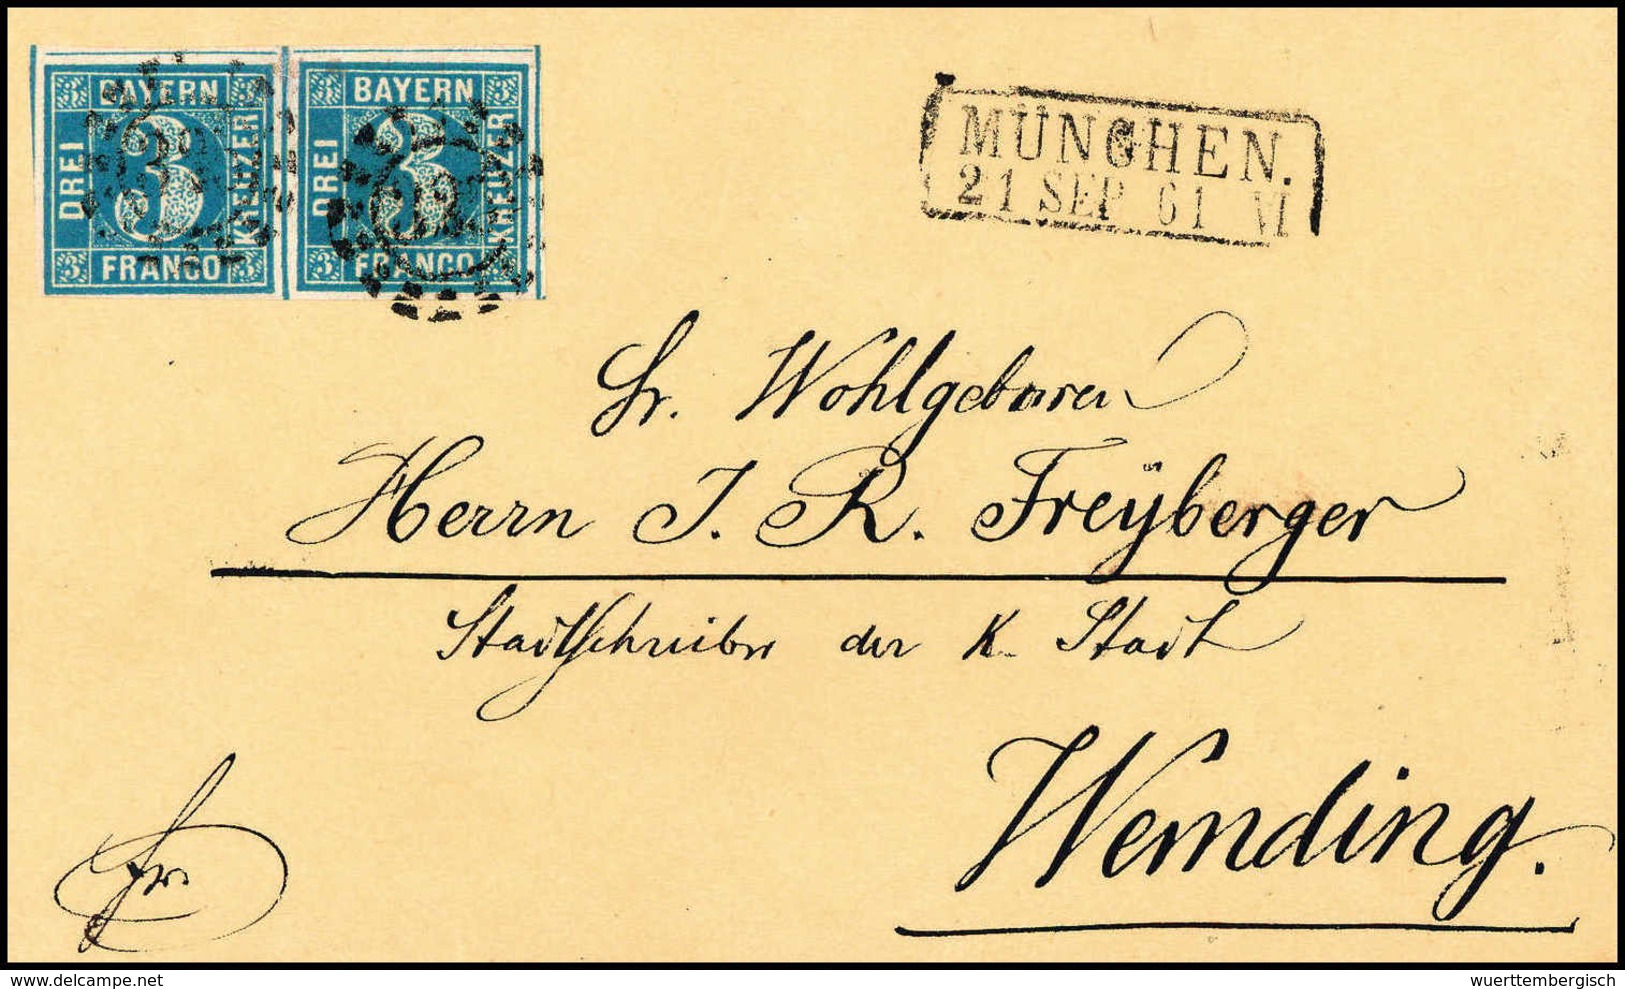 BAYERN
DREI
3
KREUZER
FRANCO
BAYERN
DREI
3
KREUZER
FRANCO
MÜNCHEN.
21 SEP 61 VI
Sr. Wohlgeboren
Herrn J. R. Freÿberger
Stadtschreiber der K. Stadt
Wemding.
fr.
delcampe.net
wuerttembergisch